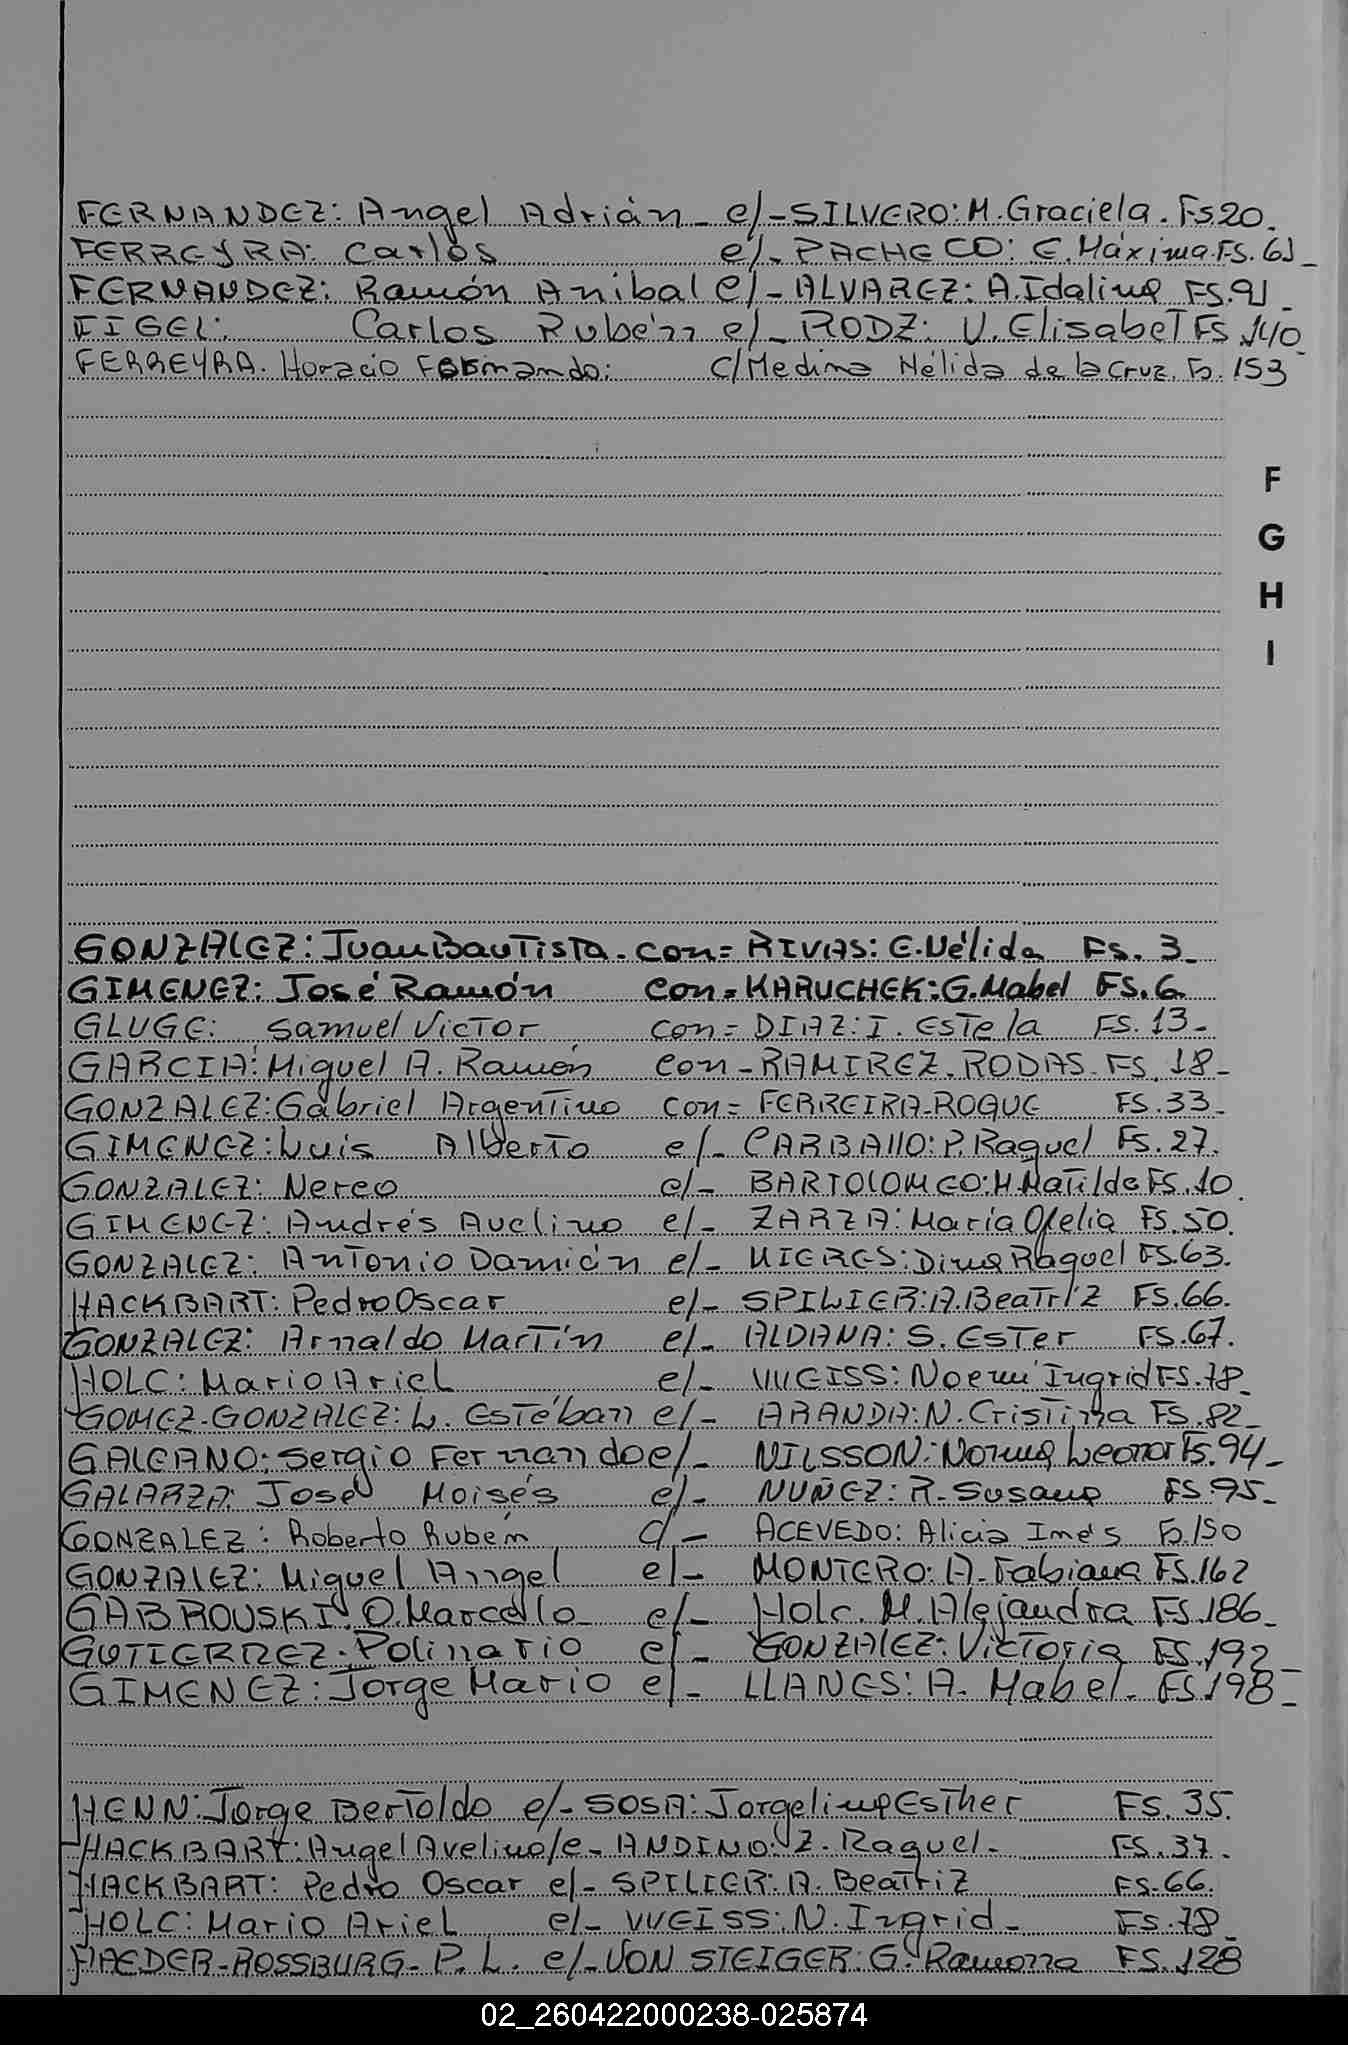 FERNANDEZ: Angel Adrián - c/- SILVERO: M. Graciela. Fs 20.
FERREYRA: Carlos c/- PACHECO: E. Máxima. FS. 61 -
FERNANDEZ: Ramón Anibal c/- ALVAREZ: A. Idalina FS. 91 -
FIGEL: Carlos Rubén c/- RODZ: V. Elisabet FS. 140
FERREYRA. Horacio Fernando: c/ Medina Nélida de la Cruz. Fo. 153
F
G
H
I
GONZALEZ: Juan Bautista. con= RIVAS: E. Nélida Fs. 3 -
GIMENEZ: José Ramón con= KARUCHEK: G. Mabel FS. 6
GLUGE: Samuel Victor con= DIAZ: I. Estela FS. 13 -
GARCIA: Miguel A. Ramón con - RAMIREZ. RODAS. FS. 18 -
GONZALEZ: Gabriel Argentino con= FERREIRA-ROQUE FS. 33 -
GIMENEZ: Luis Alberto c/- CARBALLO: P. Raquel FS. 27.
GONZALEZ: Nereo c/- BARTOLOMEO: M. Matilde FS. 10.
GIMENEZ: Andrés Avelino c/- ZARZA: María Ofelia FS. 50.
GONZALEZ: Antonio Damián c/- MIERES: Dina Raquel FS. 63.
HACKBART: Pedro Oscar c/- SPILIER: A. Beatríz FS. 66.
GONZALEZ: Arnaldo Martín c/- ALDANA: S. Ester FS. 67.
HOLC: Mario Ariel c/- WEISS: Noemí Ingrid FS. 78 -
GOMEZ-GONZALEZ: L. Estéban c/- ARANDA: N. Cristina FS. 82 -
GALEANO: Sergio Fernando c/- NILSSON: Norma Leonor FS. 94 -
GALARZA: José Moisés c/- NUÑEZ: R. Susana FS 95 -
GONZALEZ: Roberto Rubém c/- ACEVEDO: Alicia Imés Fo. 150
GONZALEZ: Miguel Angel c/- MONTERO: A. Fabiana FS. 162
GABROUSKI. O. Marcelo c/- Holc. M. Alejandra FS. 186 -
GUTIERREZ. Polinario c/- GONZALEZ: Victoria FS. 192 -
GIMENEZ: Jorge Mario c/- LLANES: A. Mabel. FS. 198 -
HENN: Jorge Bertoldo c/- SOSA: Jorgelina Esther FS. 35.
HACKBART: Angel Avelino/c - ANDINO: Z. Raquel - FS. 37.
HACKBART: Pedro Oscar c/- SPILIER: A. Beatriz FS. 66.
HOLC: Mario Ariel c/- WEISS: N. Ingrid - FS. 78 -
HAEDER-ROSSBURG - P. L. c/- VON STEIGER: G. Ramona FS. 128
02_260422000238-025874